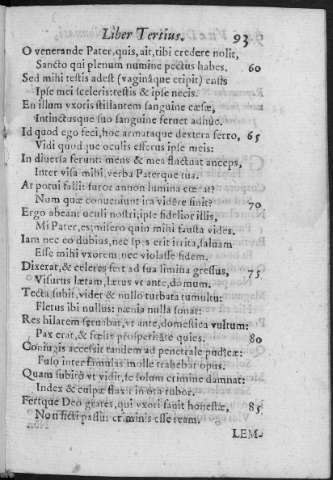 Liber Tertius. 93
O venerande Pater, quis, ait, tibi credere nolit,
Sancto qui plenum numine pectus habes. 60
Sed mihi testis adest (vaginâque eripit) ensis
Ipse mei sceleris: testis & ipse necis.
En illum vxoris stillantem sanguine cæsæ,
Intinctusque suo sanguine feruet adhuc.
Id quod ego feci, hoc armataque dextera ferro, 65
Vidi quod que oculis efferus ipse meis:
In diuersa ferunt mens & mea fluctuat anceps,
Inter visa mihi, verba Paterque tua.
At potui falli? furor an non lumina cæcat?
Num quæ conueniunt ira videre sinit? 70
Ergo abeant oculi nostri, ipse fidelior illis,
Mi Pater, es; misero quin mihi fausta vides.
Iam nec eo dubius, nec spes erit irrita, saluam
Esse mihi vxorem, nec violasse fidem.
Dixerat, & celeres fert ad sua limina gressus, 75
Visurus lætam, lætus vt ante, domum.
Tecta subit, videt & nullo turbata tumultu:
Fletus ibi nullus: nænia nulla sonat:
Res hilarem seruabat, vt ante, domestica vultum:
Pax erat, & fœlix prosperitate quies. 80
Coniugis accessit tandem ad penetrale pudicæ:
Fuso inter famulas molle trahebat opus.
Quam subitò vt vidit, se solum crimine damnat:
Index & culpæ fluxit in ora rubor.
Fertque Deo grates, qui vxori fauit honestæ, 85
Non ficti passus criminis esse ream.
LEM-